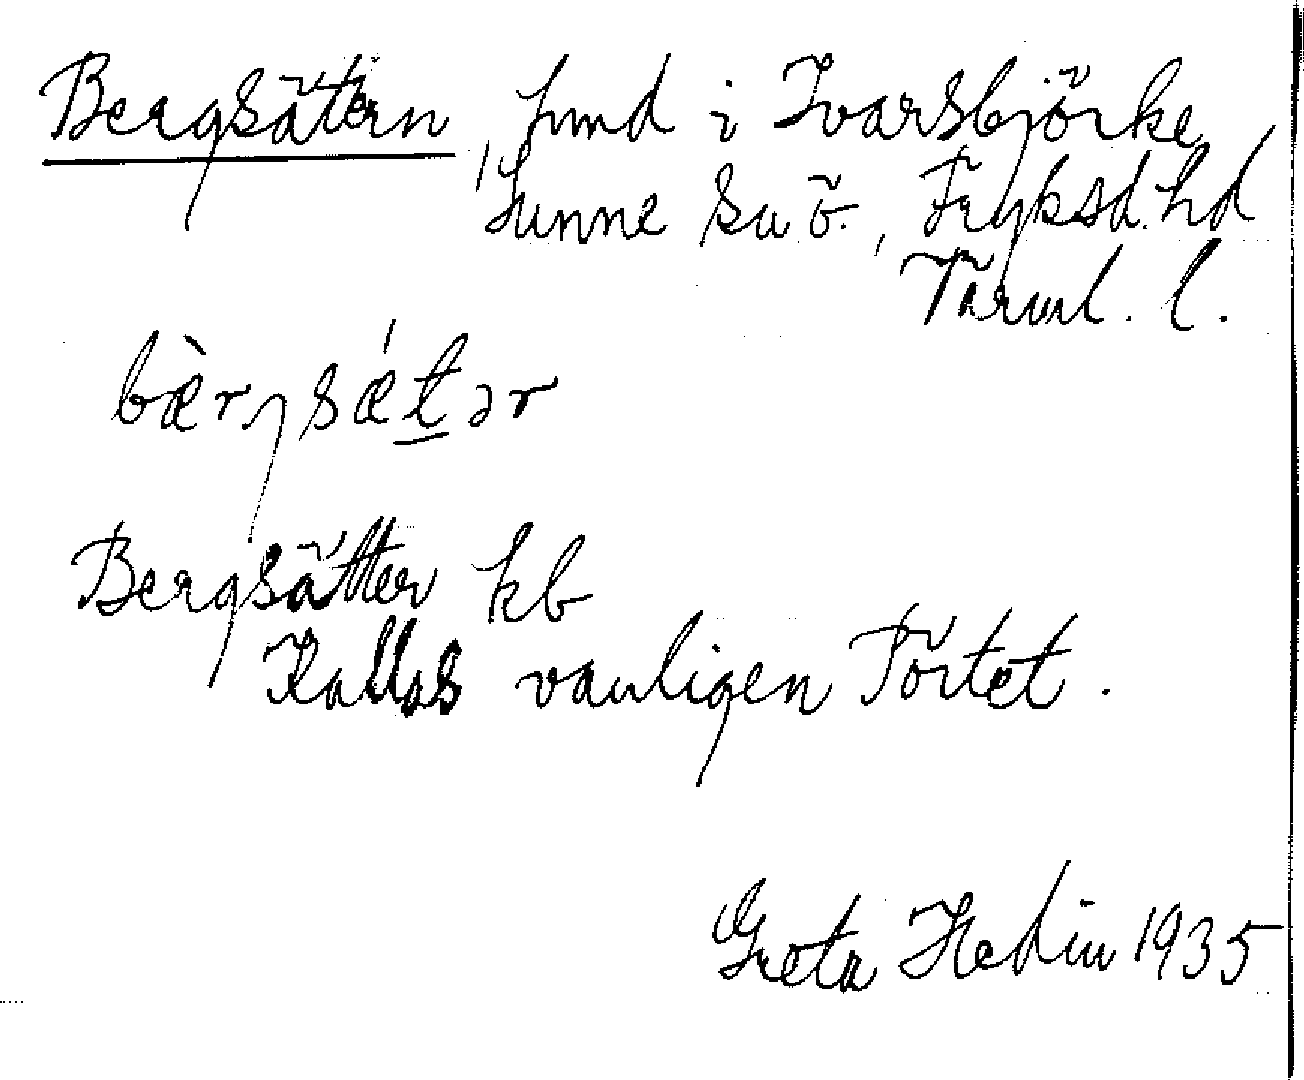 Bergsätern, hmd i Ivarsbjörke,
Sunne sn ö., Fryksd. hd
Värml. l.
bæ̀rgsǽtər
Bergsätter kb
Kallas vanligen Pörtet.
Greta Hedin 1935